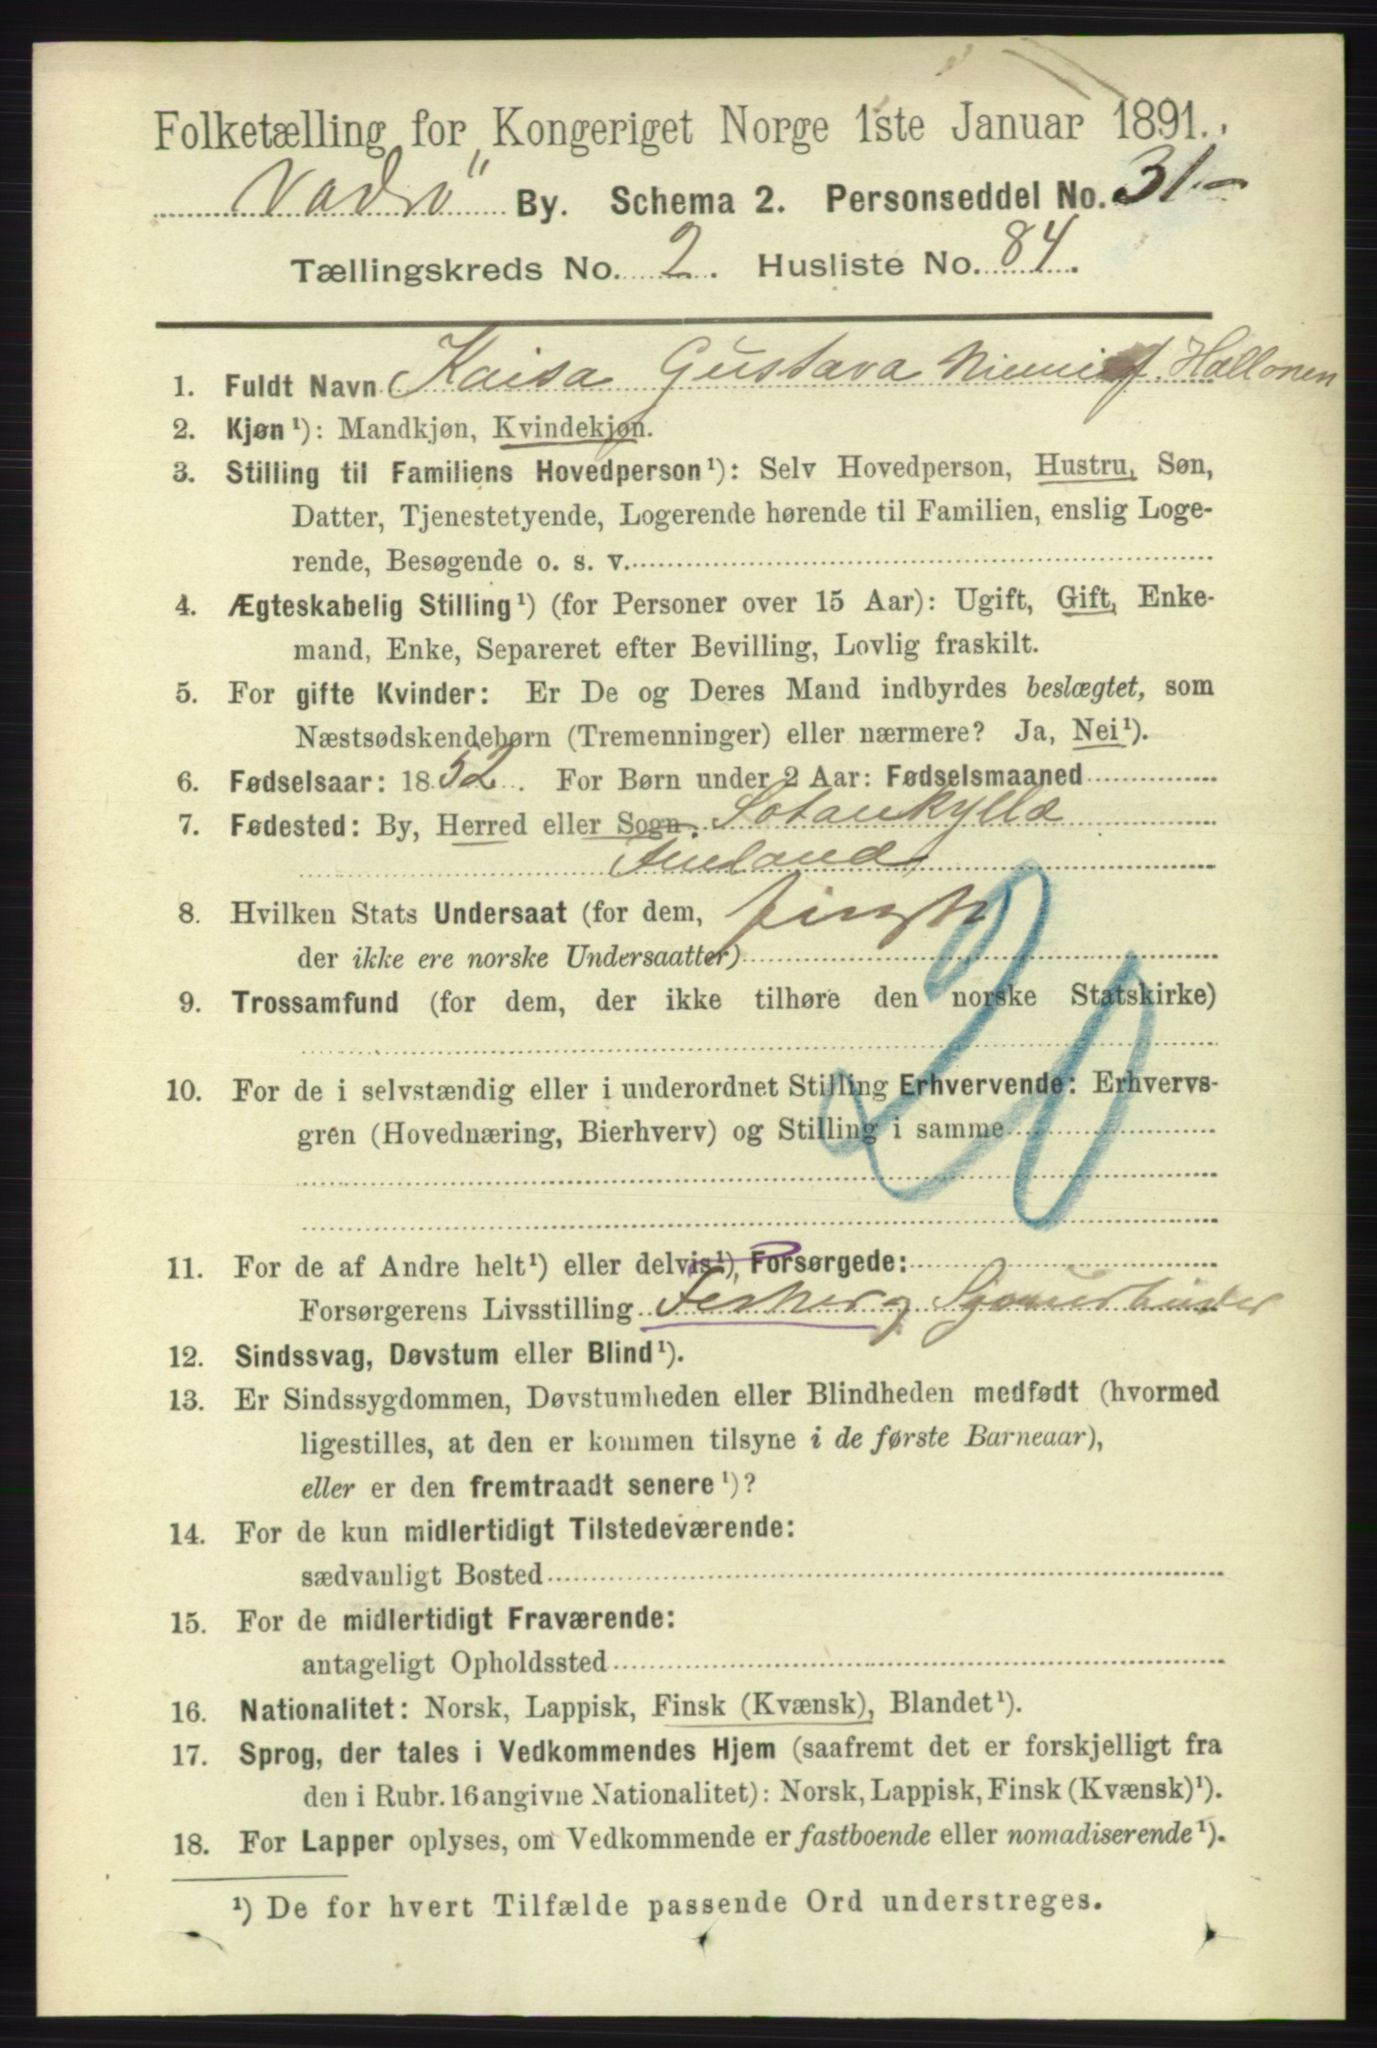 Folketælling for Kongeriget Norge 1ste Januar 1891.
Vadsö By. Schema 2. Personseddel No. 31.-
Tællingskreds No. 2. Husliste No. 84.
1. Fuldt Navn Kaisa Gustava Niemi f. Hallonen
2. Kjøn¹): Mandkjøn, Kvindekjøn.
3. Stilling til Familiens Hovedperson¹): Selv Hovedperson, Hustru, Søn,
Datter, Tjenestetyende, Logerende hørende til Familien, enslig Loge-
rende, Besøgende o. s. v.
4. Ægteskabelig Stilling¹) (for Personer over 15 Aar): Ugift, Gift, Enke-
mand, Enke, Separeret efter Bevilling, Lovlig fraskilt.
5. For gifte Kvinder: Er De og Deres Mand indbyrdes beslægtet, som
Næstsødskendebørn (Tremenninger) eller nærmere? Ja, Nei¹).
6. Fødselsaar: 1852. For Børn under 2 Aar: Fødselsmaaned
7. Fødested: By, Herred eller Sogn. Sotankylla
Finland
8. Hvilken Stats Undersaat (for dem, finsk
der ikke ere norske Undersaatter)
9. Trossamfund (for dem, der ikke tilhøre den norske Statskirke)
20
10. For de i selvstændig eller i underordnet Stilling Erhvervende: Erhvervs-
gren (Hovednæring, Bierhverv) og Stilling i samme
11. For de af Andre helt¹) eller delvis¹), Forsørgede:
Forsørgerens Livsstilling Fisker og
12. Sindssvag, Døvstum eller Blind¹).
13. Er Sindssygdommen, Døvstumheden eller Blindheden medfødt (hvormed
ligestilles, at den er kommen tilsyne i de første Barneaar),
eller er den fremtraadt senere¹)?
14. For de kun midlertidigt Tilstedeværende:
sædvanligt Bosted
15. For de midlertidigt Fraværende:
antageligt Opholdssted
16. Nationalitet: Norsk, Lappisk, Finsk (Kvænsk), Blandet¹).
17. Sprog, der tales i Vedkommendes Hjem (saafremt det er forskjelligt fra
den i Rubr. 16 angivne Nationalitet): Norsk, Lappisk, Finsk (Kvænsk)¹).
18. For Lapper oplyses, om Vedkommende er fastboende eller nomadiserende¹).
¹) De for hvert Tilfælde passende Ord understreges.